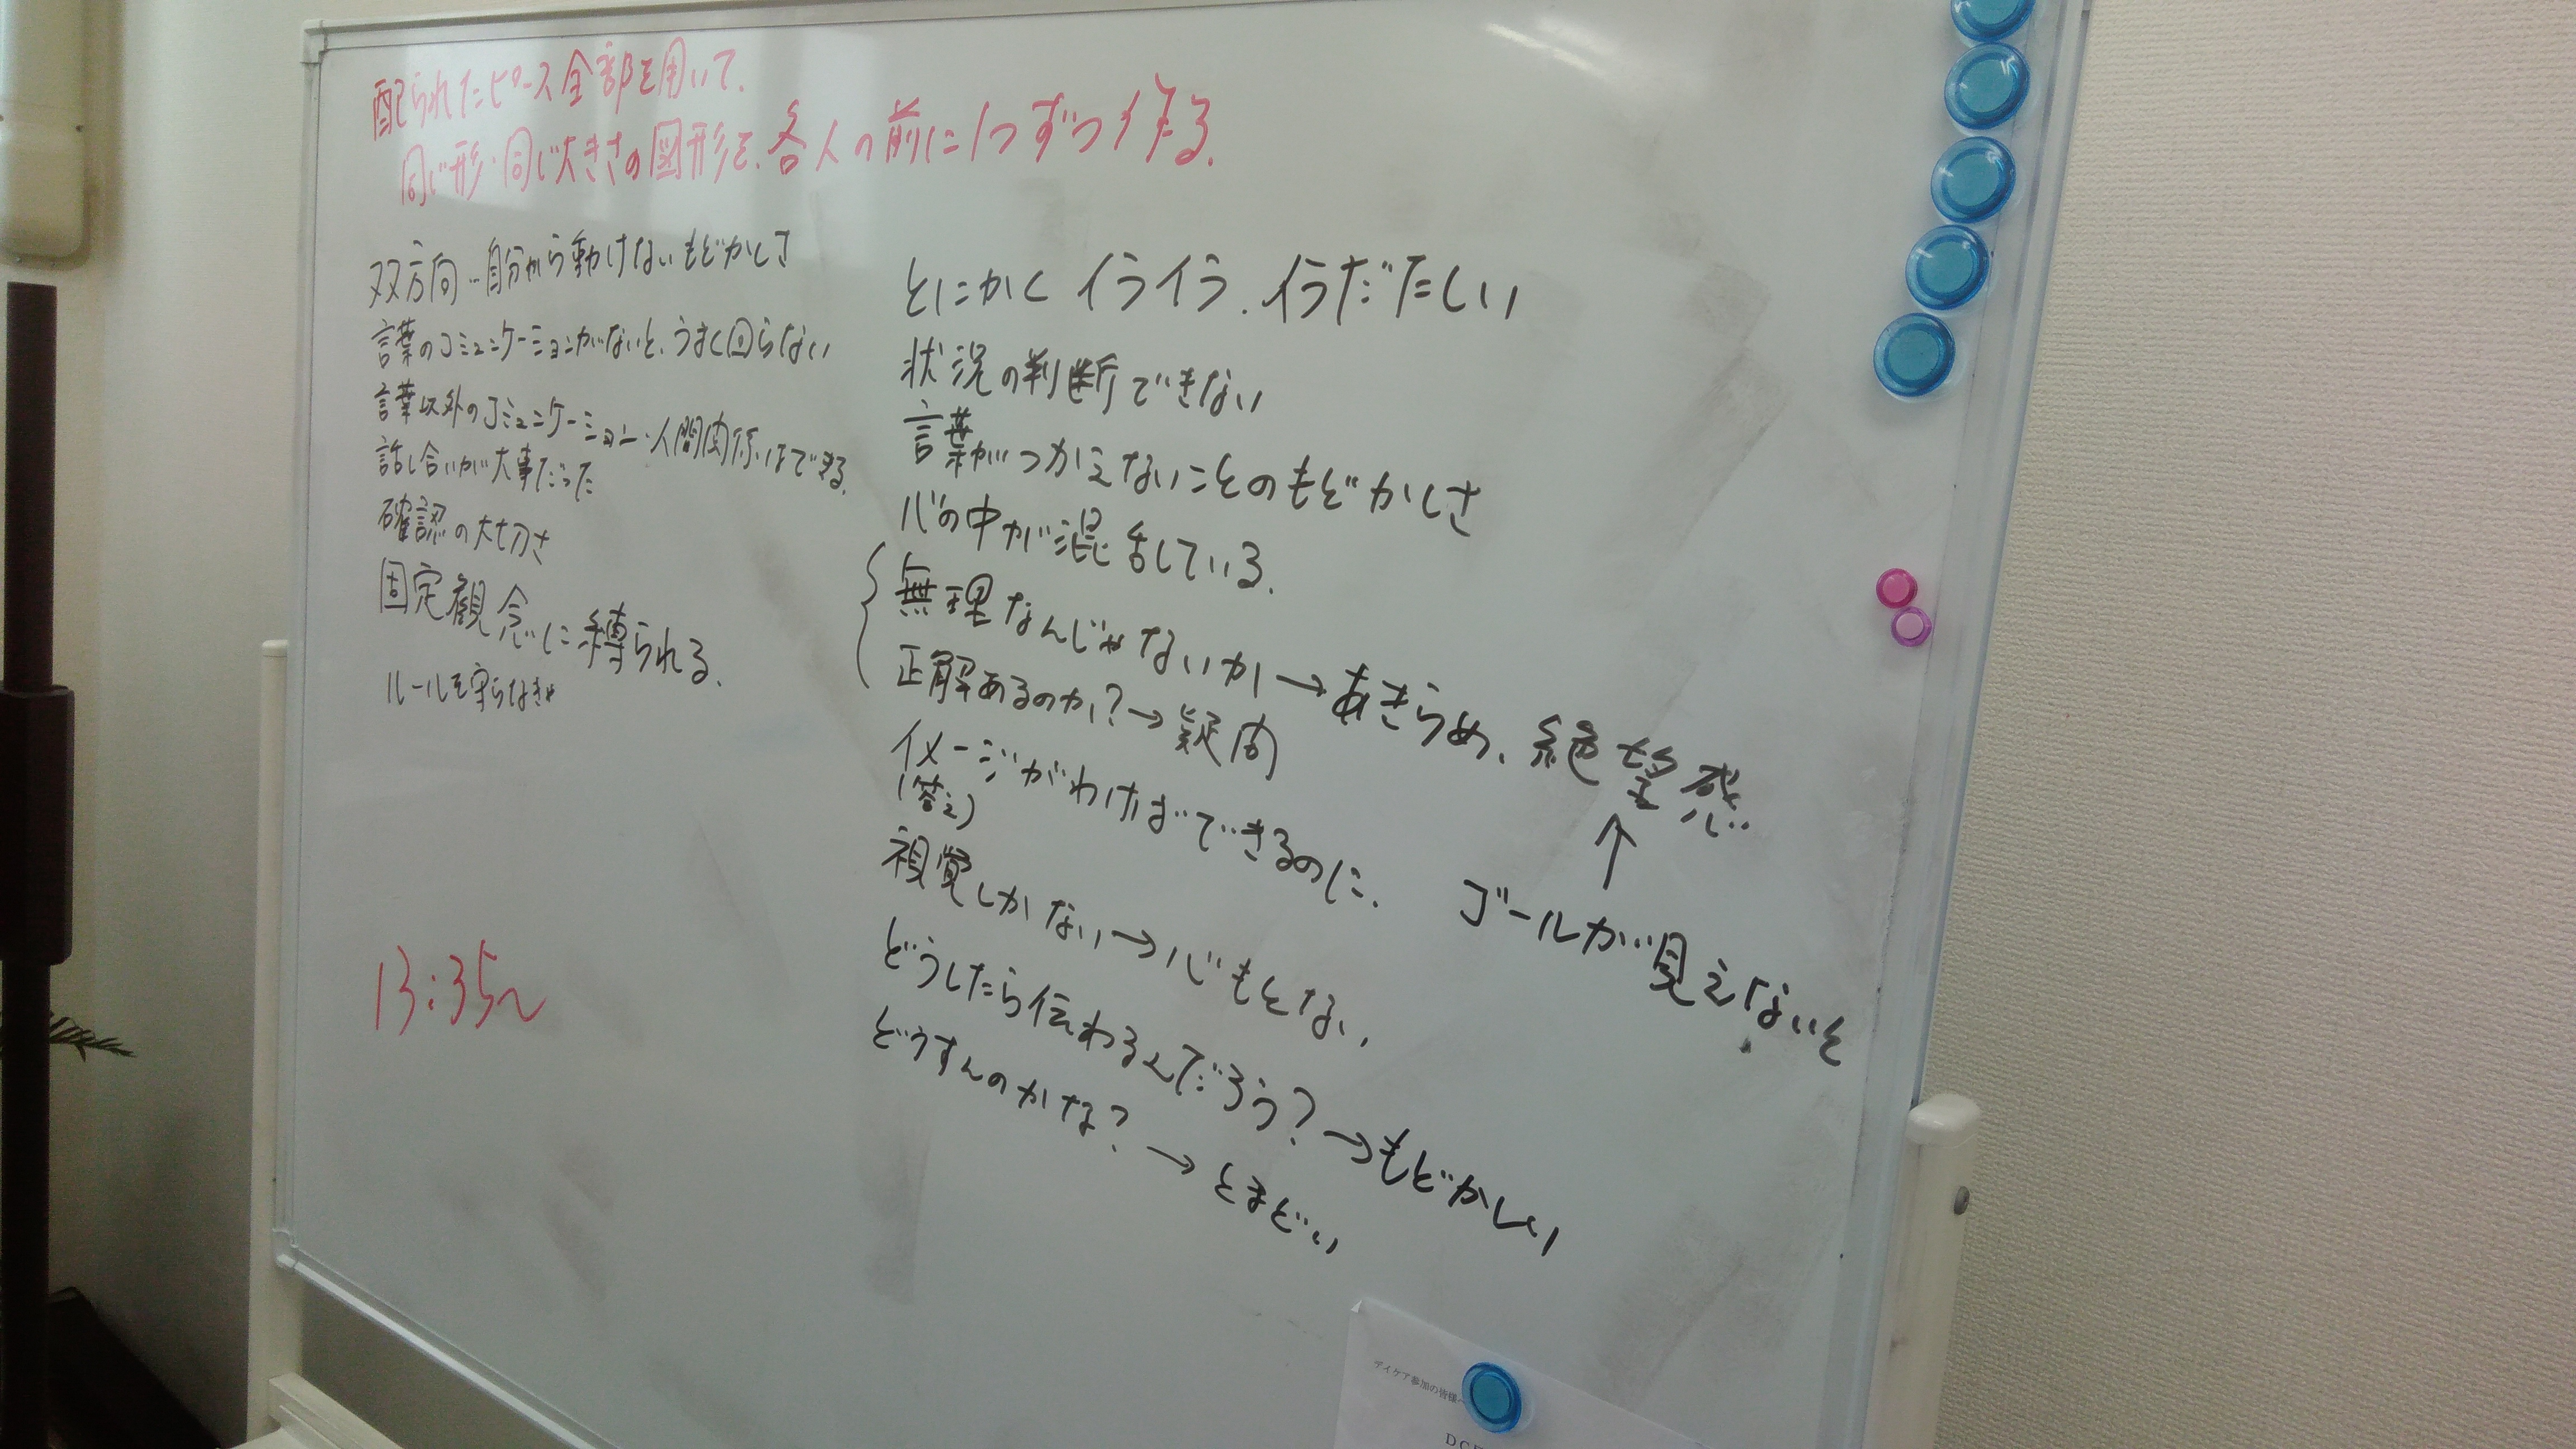 配られたピース全部を用いて.
同じ形・同じ大きさの図形を、各人の前に1つずつ作る.
双方向…自分から動けないもどかしさ
言葉のコミュニケーションがないと、うまく回らない
言葉以外のコミュニケーション・人間関係はできる.
話し合いが大事だった
確認の大切さ
固定観念に縛られる.
ルールを守らなきゃ
13:35〜
とにかくイライラ.イラだたしい
状況の判断できない
言葉がつかえないことのもどかしさ
心の中が混乱している.
無理なんじゃないか→あきらめ、絶望感
正解あるのか?→疑問
↑
イメージがわけばできるのに.
(答え)
ゴールが見えないと
視覚しかない→心もとない
どうしたら伝わるんだろう?→もどかしい
どうすんのかな?→とまどい
デイケア参加の皆様へ